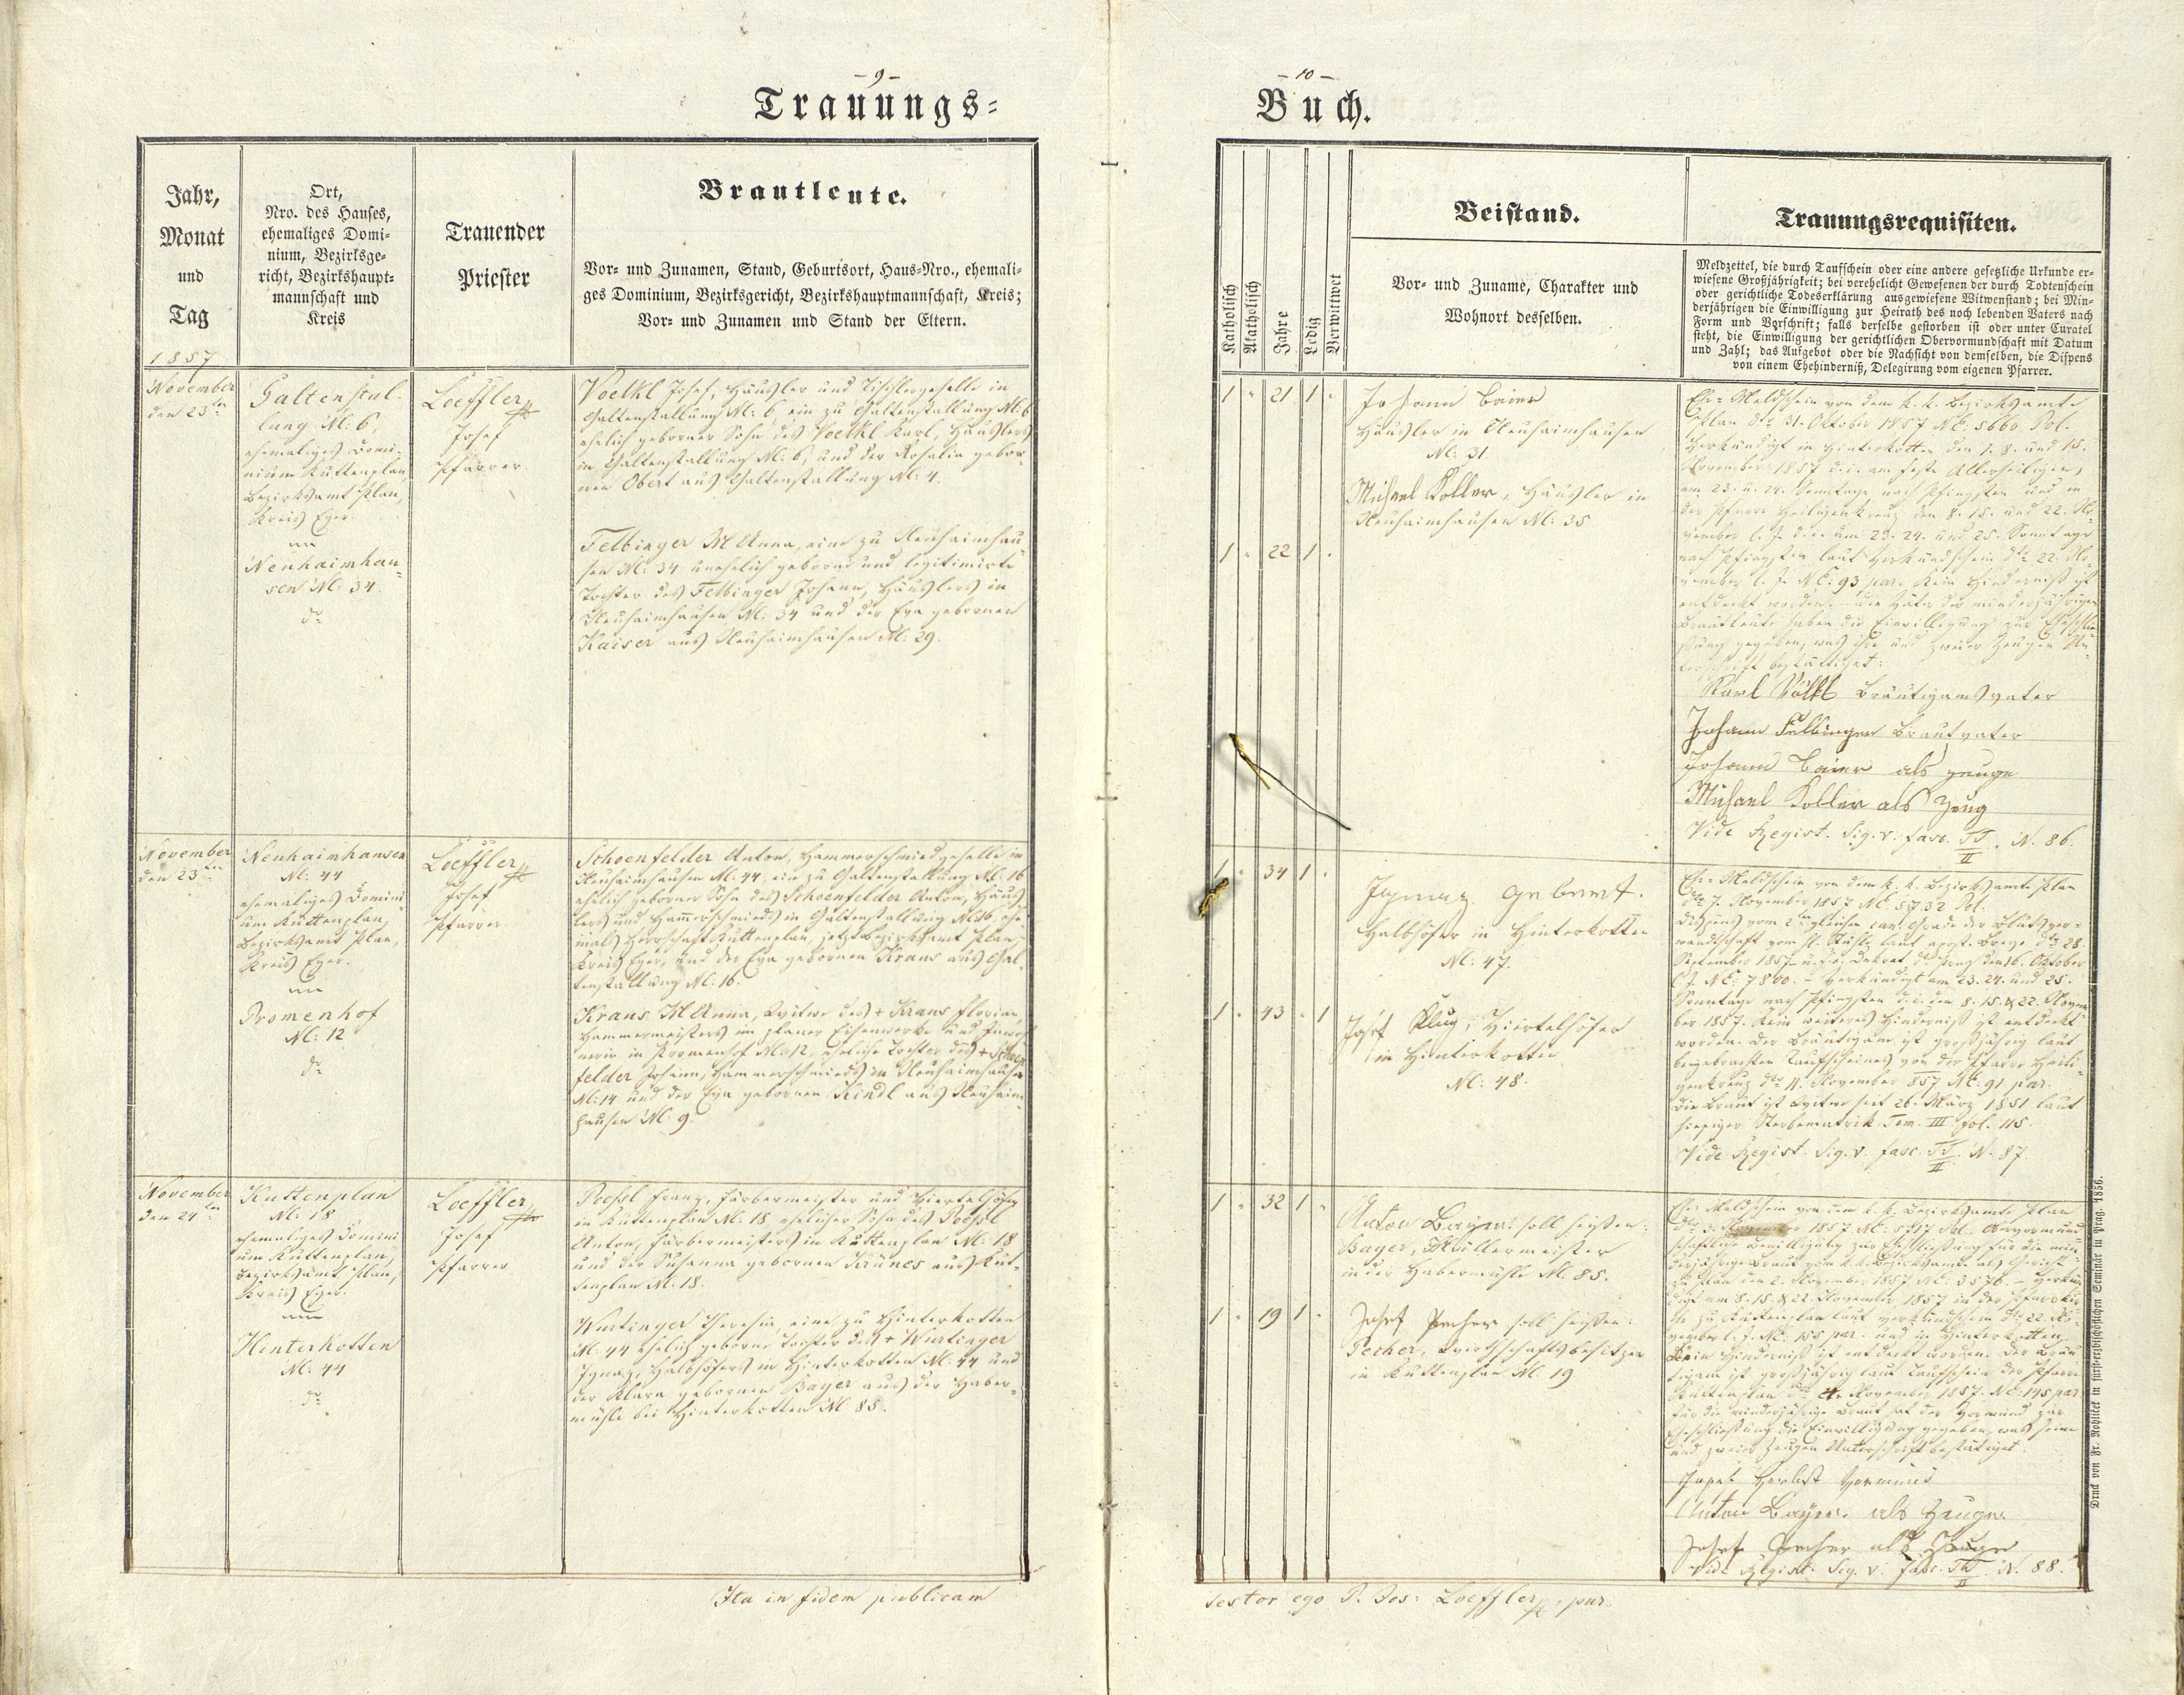 - 9 -
Trauungs-
Jahr,
Monat
und
Tag
Ort,
Nro. des Hauses,
ehemaliges Domi-
nium, Bezirksge-
richt, Bezirkshaupt-
mannschaft und
Kreis
Trauender
Priester
Brautleute.
Vor- und Zunamen, Stand, Geburtsort, Haus-Nro., ehemali-
ges Dominium, Bezirksgericht, Bezirkshauptmannschaft, Kreis;
Vor- und Zunamen und Stand der Eltern.
1857
November
den 23ten
Galtenstal-
lung N: 6,
ehemaliges Domi-
nium Kuttenplan,
Bezirksamt Plan,
Kreis Eger.
Neuhaimhau-
sen N: 34.
do
Loeffler
Josef
Pfarrer.
Voelkl Josef, Häusler und Tischlergeselle in
Galtenstallung N: 6, ein zu Galtenstallung N: 6
ehelich geborner Sohn des Voelkl Karl, Häuslers
in Galtenstallung N: 6, und der Rosalia gebor-
nen Obert aus Galtenstallung N: 4.
Felbinger M Anna, eine zu Neuhaimhau-
sen N: 34 unehelich geborne und legitimirte
Tochter des Felbinger Johann, Häuslers in
Neuhaimhausen N: 34 und der Eva gebornen
Kaiser aus Neuhaimhausen N: 29.
November
den 23ten
Neuhaimhausen
N: 44
ehemaliges Domini-
um Kuttenplan,
Bezirksamt Plan,
Kreis Eger.
Promenhof
N: 12
do
Loeffler
Josef
Pfarrer
Schoenfelder Anton, Hammerschmiedgeselle in
Neuhaimhausen N: 44, ein zu Galtenstallung N: 16
ehelich geborner Sohn des Schoenfelder Anton, Häus-
lers und Hammerschmieds in Galtenstallung N: 16, ehe-
mals Herrschaft Kuttenplan, jetzt Bezirksamt Plan,
Kreis Eger, und der Eva gebornen Kraus aus Gal-
tenstallung N: 16.
Kraus M Anna, Witwe des + Kraus Florian,
Hammermeisters im Planer Eisenwerke und
in Promenhof N: 12, eheliche Tochter des + Schoen-
felder Johann, Hammerschmieds in Neuhaimhausen
N: 14 und der Eva gebornen Kindl aus Neuhaim-
hausen N: 9.
November
den 24ten
Kuttenplan
N: 18
ehemaliges Domini-
um Kuttenplan,
Bezirksamt Plan,
Kreis Eger.
Hinterkotten
N: 44
do
Loeffler
Josef
Pfarrer
Poessl Franz, Färbermeister und Viertelhöfer
in Kuttenplan N: 18, ehelicher Sohn des Poessl
Anton, Färbermeisters in Kuttenplan N: 18
und der Susanna gebornen aus Kut-
tenplan N: 18.
Wurtinger Theresia, eine zu Hinterkotten
N: 44 ehelich geborne Tochter des + Wurtinger
Ignaz, Halbhöfers in Hinterkotten N: 44 und
der Klara gebornen Bayer aus der Haber-
mühle bei Hinterkotten N: 85.
Ita in fidem publicam
- 10 -
Buch.
Katholisch
Akatholisch
Jahre
Ledig
Verwittwet
Beistand.
Vor- und Zuname, Charakter und
Wohnort desselben.
Trauungsrequisiten.
Meldzettel, die durch Taufschein oder eine andere gesetzliche Urkunde er-
wiesene Großjährigkeit; bei verehelicht Gewesenen der durch Todtenschein
oder gerichtliche Todeserklärung ausgewiesene Witwenstand; bei Min-
derjährigen die Einwilligung zur Heirath des noch lebenden Vaters nach
Form und Vorschrift; falls derselbe gestorben ist oder unter Curatel
steht, die Einwilligung der gerichtlichen Obervormundschaft mit Datum
und Zahl; das Aufgebot oder die Nachsicht von demselben, die Dispens
von einem Ehehinderniß, Delegirung vom eigenen Pfarrer.
1 " 21 1 "
Johann Baier
Häusler in Neuhaimhausen
N: 31.
Michael Koller, Häusler in
Neuhaimhausen N: 35
1 " 22 1 "
Ehe-Meldschein von dem k. k. Bezirksamte
Plan dto 31. Oktober 1857 NE: 5660 Pol.
Verkündigt in Hinterkotten den 1. 8. und 15.
November 1857 d. i. am Feste Allerheiligen,
am 23. u. 24. Sonntage nach Pfingsten und in
der Pfarre Heiligenkreuz den 8. 15. und 22. No-
vember l. J. d. i. am 23. 24. und 25. Sonntage
nach Pfingsten laut Verkündschein dto 22. No-
vember l. J. NE: 93 par. Kein Hinderniß ist
entdeckt worden. – Die Väter der minderjährigen
Brautleute haben die Einwilligung zur Eheschlie-
ßung gegeben, was ihre und zweier Zeugen Un-
terschrift bestättiget:
Karl Völkl Bräutigamsvater
Johann Felbinger Brautvater
Johann Baier als zeuge
Michael Koller als Zeug
Vide Regist. Sig. v. fasc. TT/II. N. 86.
1 " 34 1 "
Ignaz Gebert.
Halbhöfer in Hinterkotten
N: 47.
1 " 43 " 1
Josef Klug, Viertelhöfer
in Hinterkotten
N: 48.
Ehe-Meldschein von dem k. k. Bezirksamte Plan
dto 7. November 1857 NE: 5732 Pol.
Dispens vom 2ten gleichen can. Grade der Blutsver-
wandtschaft vom hl. Stuhle laut apost. Breve dto 28.
September 1857 Dekret Prag den 16. Oktober
l. J. NE: 7800. – Verkündigt am 23. 24. und 25.
Sonntage nach Pfingsten d. i. den 8. 15. & 22. Novem-
ber 1857. Kein weiteres Hinderniß ist entdeckt
worden. Der Bräutigam ist großjährig laut
beigebrachten Taufscheines von der Pfarre Heili-
genkreuz dto 11. November 857 NE: 91 par.
Die Braut ist Witwe seit 26. März 1851 laut
hiesiger Sterbematrik Tom. III fol. 115.
Vide Regist. Sig. v. fasc. TT/II. N. 87.
1 " 32 1 "
Anton Bayer: soll heißen:
Bayer, Müllermeister
in der Habermühle N: 85.
1 " 19 1 "
Josef Pecher soll heißen:
Pecher, Wirthschaftsbesitzer
in Kuttenplan N: 19
Ehe-Meldschein von dem k. k. Bezirksamte Plan
dto November 1857 NE: 5717 Pol. Obervormund-
schaftliche Bewilligung zur Eheschließung für die min-
derjährige Braut vom k. k. Bezirksamte als Gericht
zu Plan den 2. November 1857 NE: 3576. – Verkün-
digt am 8. 15. & 22. November 1857 in der Pfarrkir-
che zu Kuttenplan laut Verkündschein dto 22. No-
vember l. J. NE: 155 par. und in Hinterkotten.
Kein Hinderniß ist entdeckt worden. Der Bräu-
tigam ist großjährig laut Taufschein der Pfarre
Kuttenplan dto November 1857. NE: 145 par.
Für die minderjährige Braut hat der Vormund zur
Eheschließung die Einwilligung gegeben, was seine
und zweier Zeugen Unterschrift bestätiget.
Vormund
Anton Bayer. als Zeuge.
Josef Pecher als Zeuge
Vide Regist. Sig. v. fasc. TT/II. N. 88.
Testor ego P. Jos: Loeffler, par.
Druck von Fr. Rohliček in fürst-erzbischöflichen Seminär in Prag. 1856.